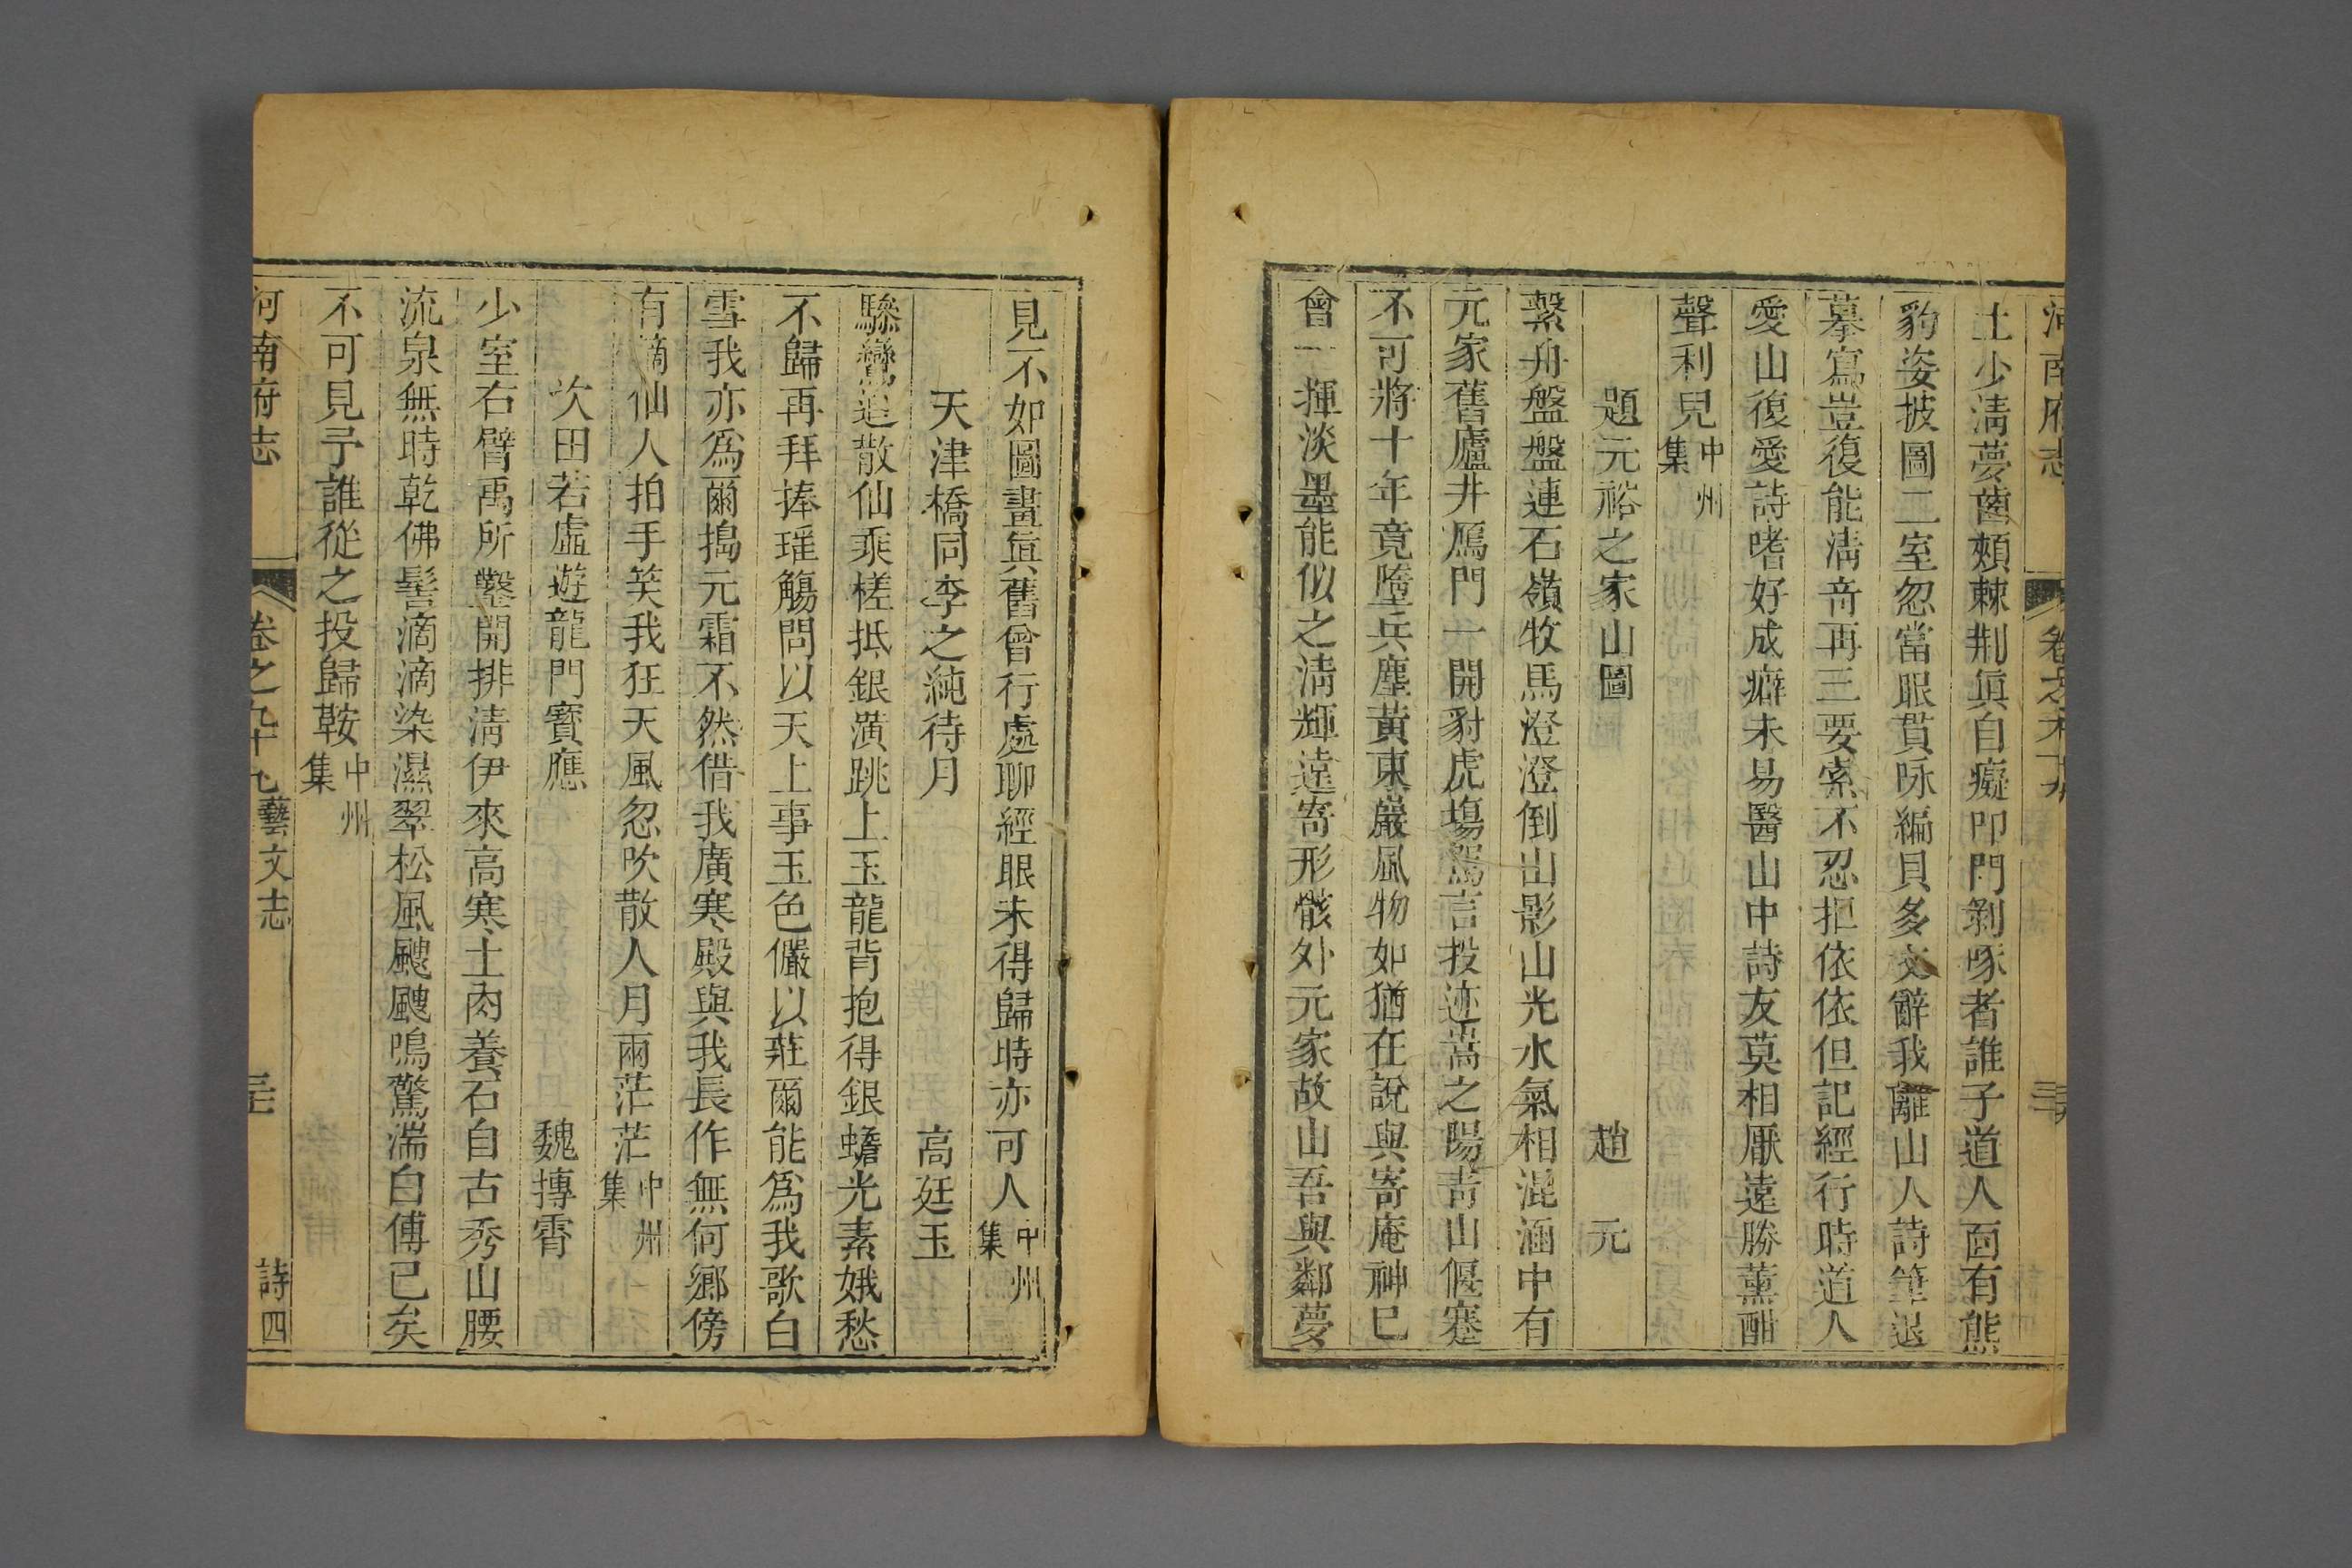 河南府志 卷之九十九 藝文志
土少淸夢齒頰棘荆眞自癡叩門剝啄者誰子道人面有熊
豹姿披圖二室忽當眼貫珠編貝多文辭我離山人詩筆退
摹寫豈復能淸竒再三要索不忍拒依依但記經行時道人
愛山復愛詩嗜好成癖未易醫山中詩友莫相厭遠勝薰酣
聲利兒中州集
題元裕之家山圖 趙元
繫舟盤盤連石嶺牧馬澄澄倒山影山光水氣相混涵中有
元家舊廬井鴈門一開豺虎塲駕言投迹嵩之陽靑山偃蹇
不可將十年竟墮兵塵黃東巖風物如猶在說與寄庵神已
會一揮淡墨能似之淸輝遠寄形骸外元家故山吾與鄰夢
見不如圖畫眞舊曾行處聊經眼未得歸時亦可人中州集
天津橋同李之純待月 高廷玉
驂鸞追散仙乘槎抵銀潢跳上玉龍背抱得銀蟾光素娥愁
不歸再拜捧瑤觴問以天上事玉色儼以莊爾能爲我歌白
雪我亦爲爾搗元霜不然借我廣寒殿與我長作無何鄉傍
有謫仙人拍手笑我狂天風忽吹散人月兩茫茫中州集
次田若虛遊龍門寳應 魏摶霄
少室右臂禹所鑿開排淸伊來高寒土肉養石自古秀山腰
流泉無時乾佛髻滴滴染濕翠松風颼颼鳴驚湍白傅已矣
不可見予誰從之投歸鞍中州集
河南府志 卷之九十九 藝文志 詩四